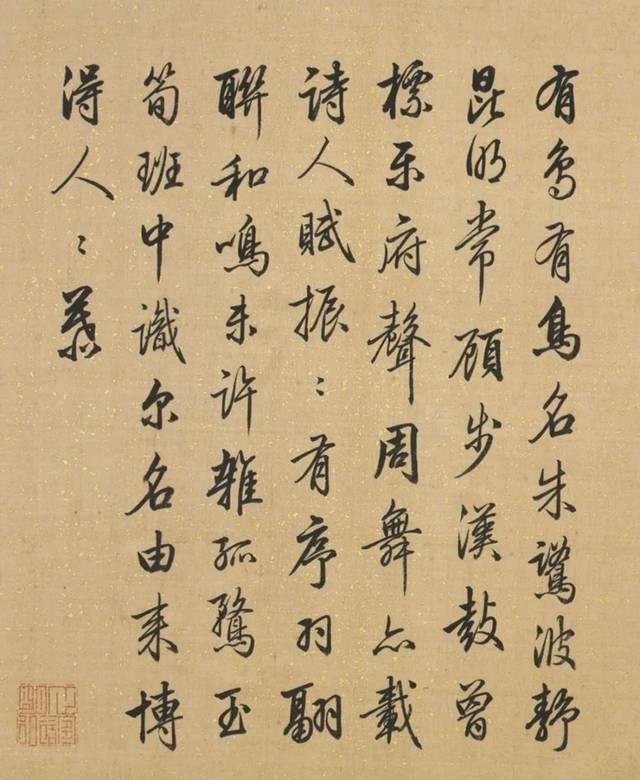 有鳥有鳥名朱鷺波静
昆明常顧步漢鼓曾
標乐府聲周舞亦載
詩人賦振〻有序羽翮
聯和鳴未許雜孤鶩玉
筍班中識尔名由来博
得人〻慕